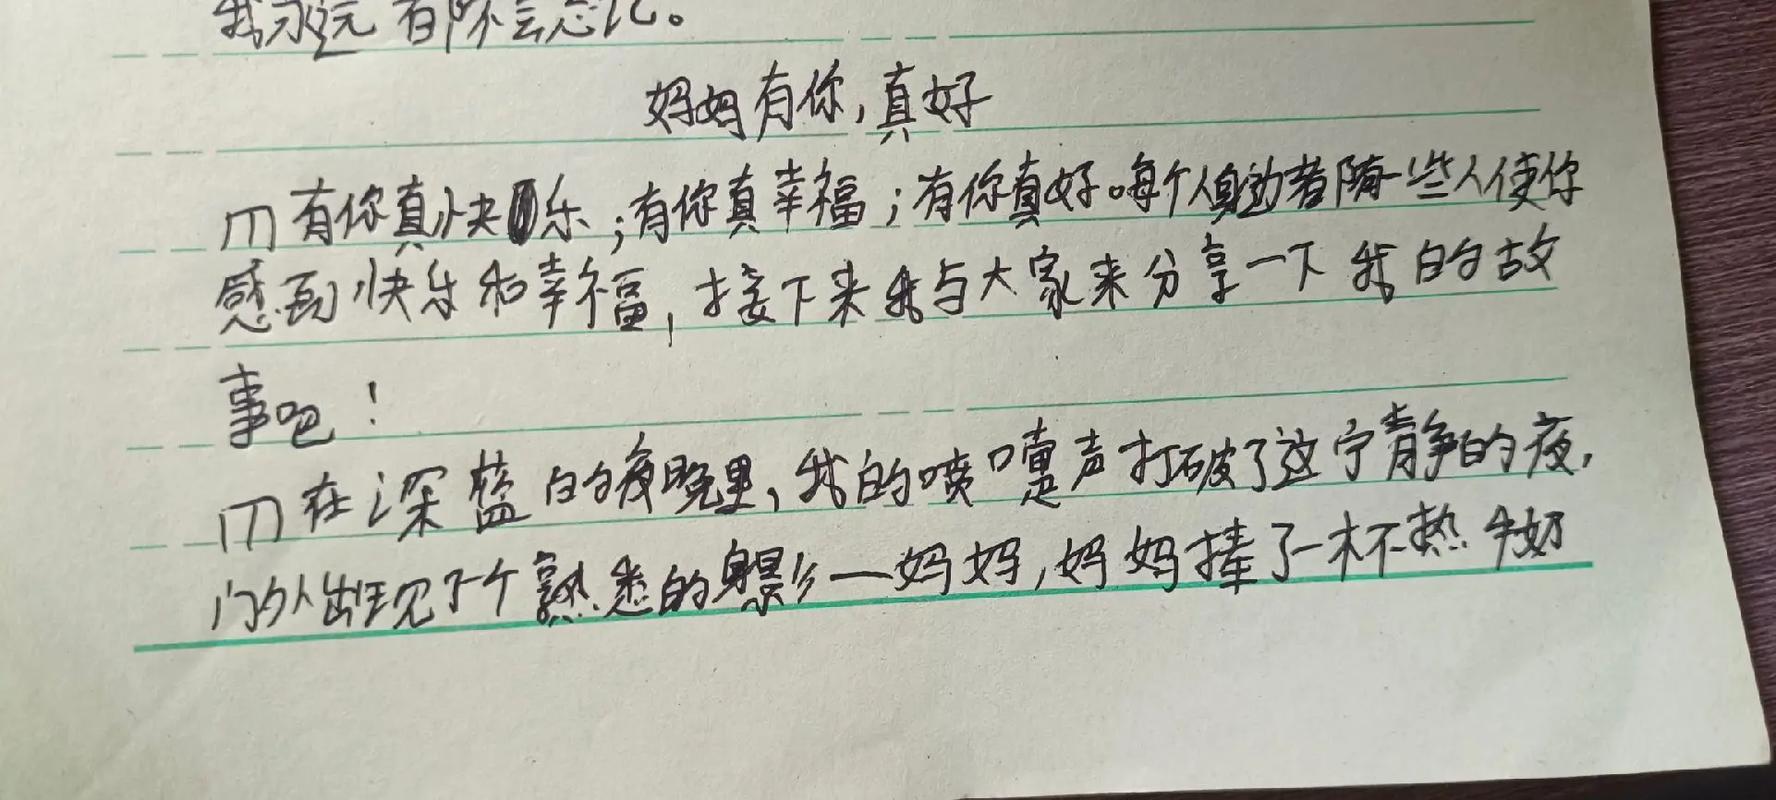 我永远都不会忘记。
妈妈有你,真好
有你真快乐;有你真幸福;有你真好。每个人身边都有一些人使你
感到快乐和幸福,接下来我与大家来分享一下我的故
事吧!
在深蓝的夜晚里,我的喷嚏声打破了这宁静的夜,
门外出现了个熟悉的身影—妈妈,妈妈捧了一杯热牛奶